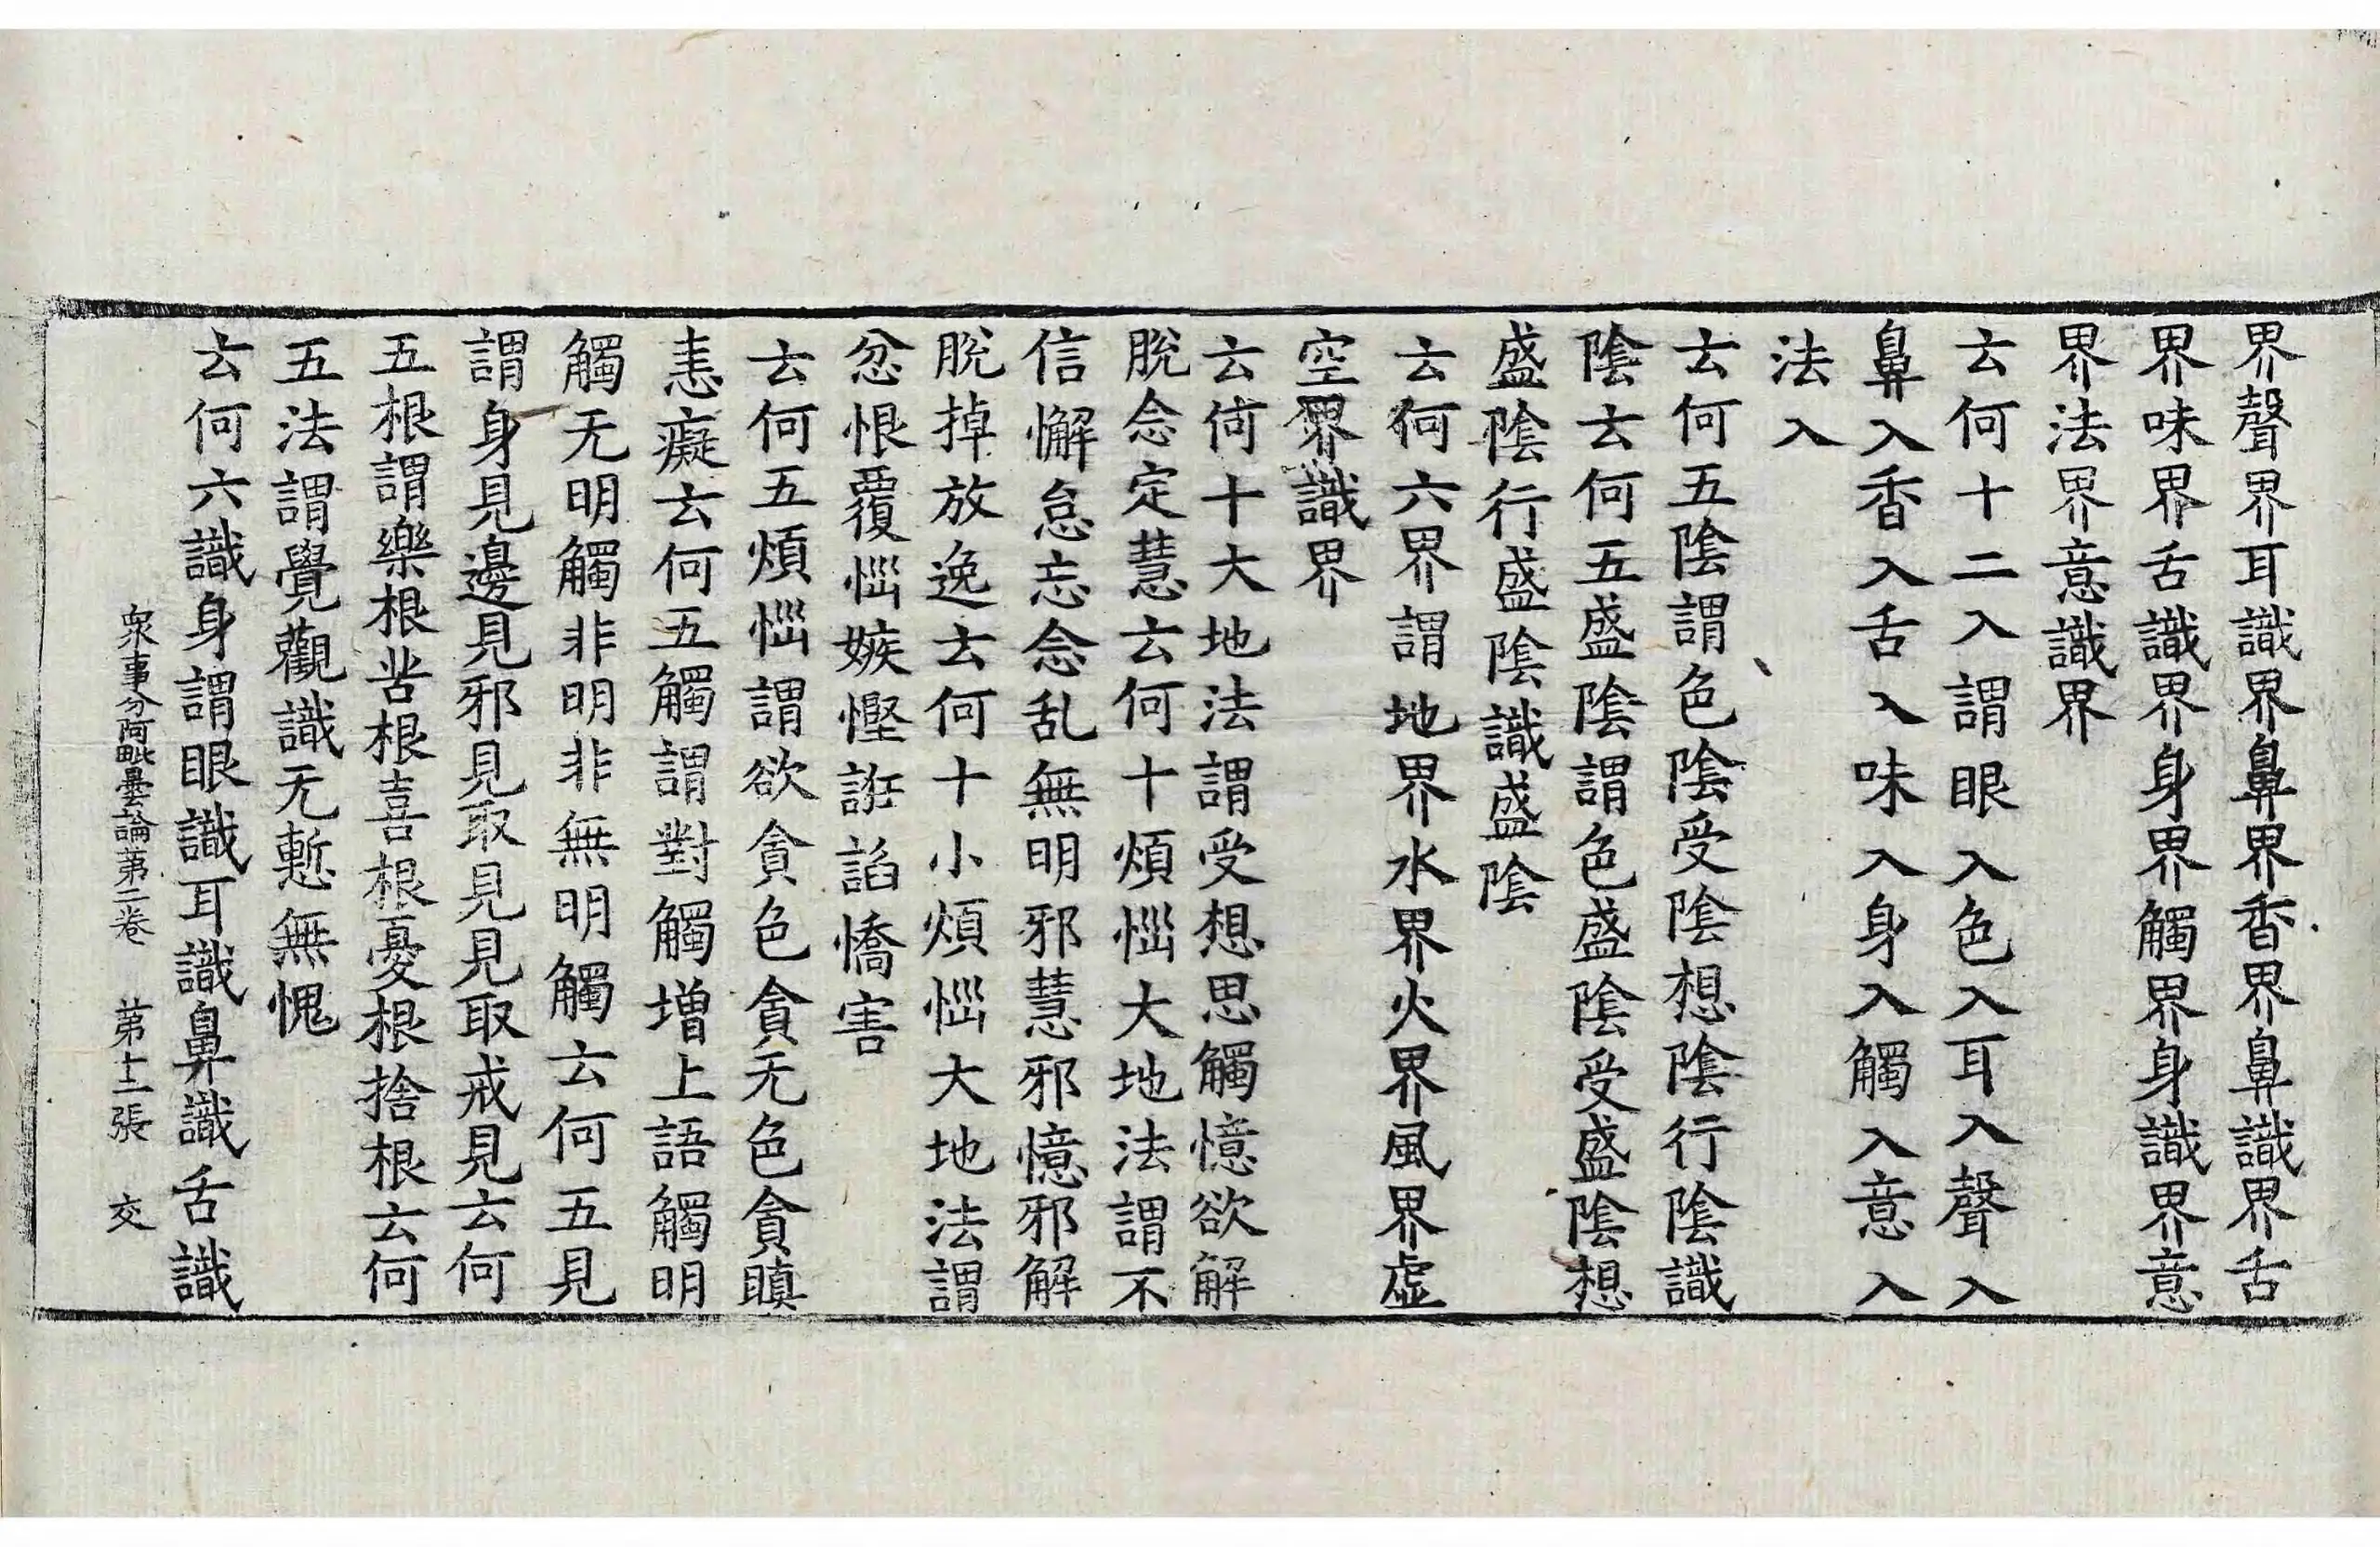 界聲界耳識界鼻界香界鼻識界舌
界味界舌識界身界觸界身識界意
界法界意識界
云何十二入謂眼入色入耳入聲入
鼻入香入舌入味入身入觸入意入
法入
云何五陰謂色陰受陰想陰行陰識
陰云何五盛陰謂色盛陰受盛陰想
盛陰行盛陰識盛陰
云何六界謂地界水界火界風界虛
空界識界
云何十大地法謂受想思觸憶欲解
脫念定慧云何十煩惱大地法謂不
信懈怠忘念乱無明邪慧邪憶邪解
脫掉放逸云何十小煩惱大地法謂
忿恨覆惱嫉慳誑諂憍害
云何五煩惱謂欲貪色貪无色貪瞋
恚癡云何五觸謂對觸增上語觸明
觸无明觸非明非無明觸云何五見
謂身見邊見邪見取見見取戒見云何
五根謂樂根苦根喜根憂根捨根云何
五法謂覺觀識无慙無愧
云何六識身謂眼識耳識鼻識舌識
衆事分阿毗曇論苐二卷　苐十二張　交